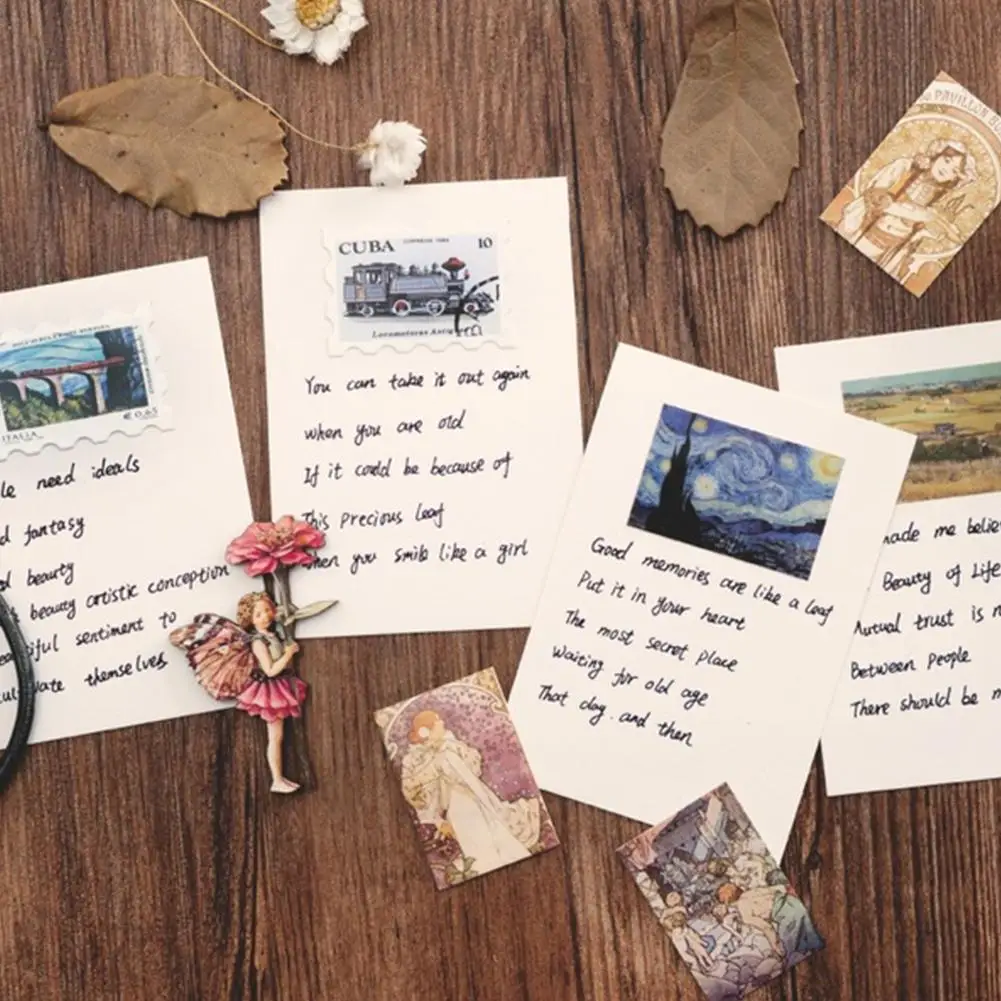 PAVILLON
CUBA CORREOS 1984 10
Locomotoras Antig
ITALIA
€ 0,65
le need ideals
d fantasy
d beauty
beauty artistic conception
iful sentiment to
ate themselves
You can take it out again
when you are old
If it could be because of
This Precious leaf
when you smile like a girl
Good memories are like a leaf
Put it in your heart
The most secret place
waiting for old age
That day. and then
made me belie
Beauty of Life
Mutual trust is m
Between People
There should be m